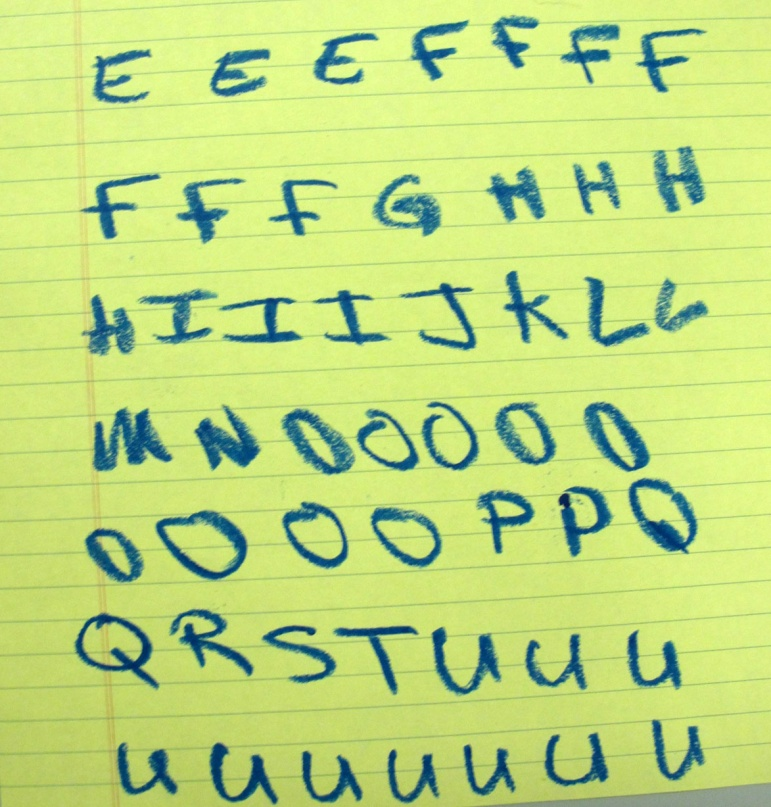 E E E F F F F
F F F G H H H
H I I I J K L L
M N O O O O O
O O O O P P Q
Q R S T U U U
U U U U U U U